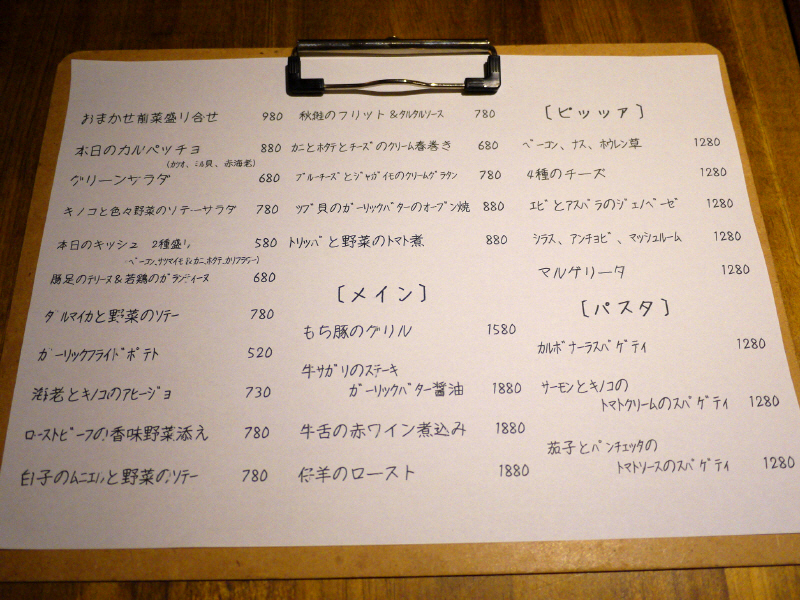 おまかせ前菜盛り合せ 980
本日のカルパッチョ 880
(カツオ、ミル貝、赤海老)
グリーンサラダ 680
キノコと色々野菜のソテーサラダ 780
本日のキッシュ 2種盛り 580
(ベーコン、サツマイモ&カニ、ホタテ、カリフラワー)
豚足のテリーヌ&若鶏のガランティーヌ 680
ダルマイカと野菜のソテー 780
ガーリックフライドポテト 520
海老とキノコのアヒージョ 730
ローストビーフの香味野菜添え 780
白子のムニエルと野菜のソテー 780
秋鮭のフリット&タルタルソース 780
カニとホタテとチーズのクリーム春巻き 680
ブルーチーズとジャガイモのクリームグラタン 780
ツブ貝のガーリックバターのオーブン焼 880
トリッパと野菜のトマト煮 880
〔メイン〕
もち豚のグリル 1580
牛サガリのステーキ
ガーリックバター醤油 1880
牛舌の赤ワイン煮込み 1880
仔羊のロースト 1880
〔ピッツァ〕
ベーコン、ナス、ホウレン草 1280
4種のチーズ 1280
エビとアスパラのジェノベーゼ 1280
シラス、アンチョビ、マッシュルーム 1280
マルゲリータ 1280
〔パスタ〕
カルボナーラスパゲティ 1280
サーモンとキノコの
トマトクリームのスパゲティ 1280
茄子とパンチェッタの
トマトソースのスパゲティ 1280